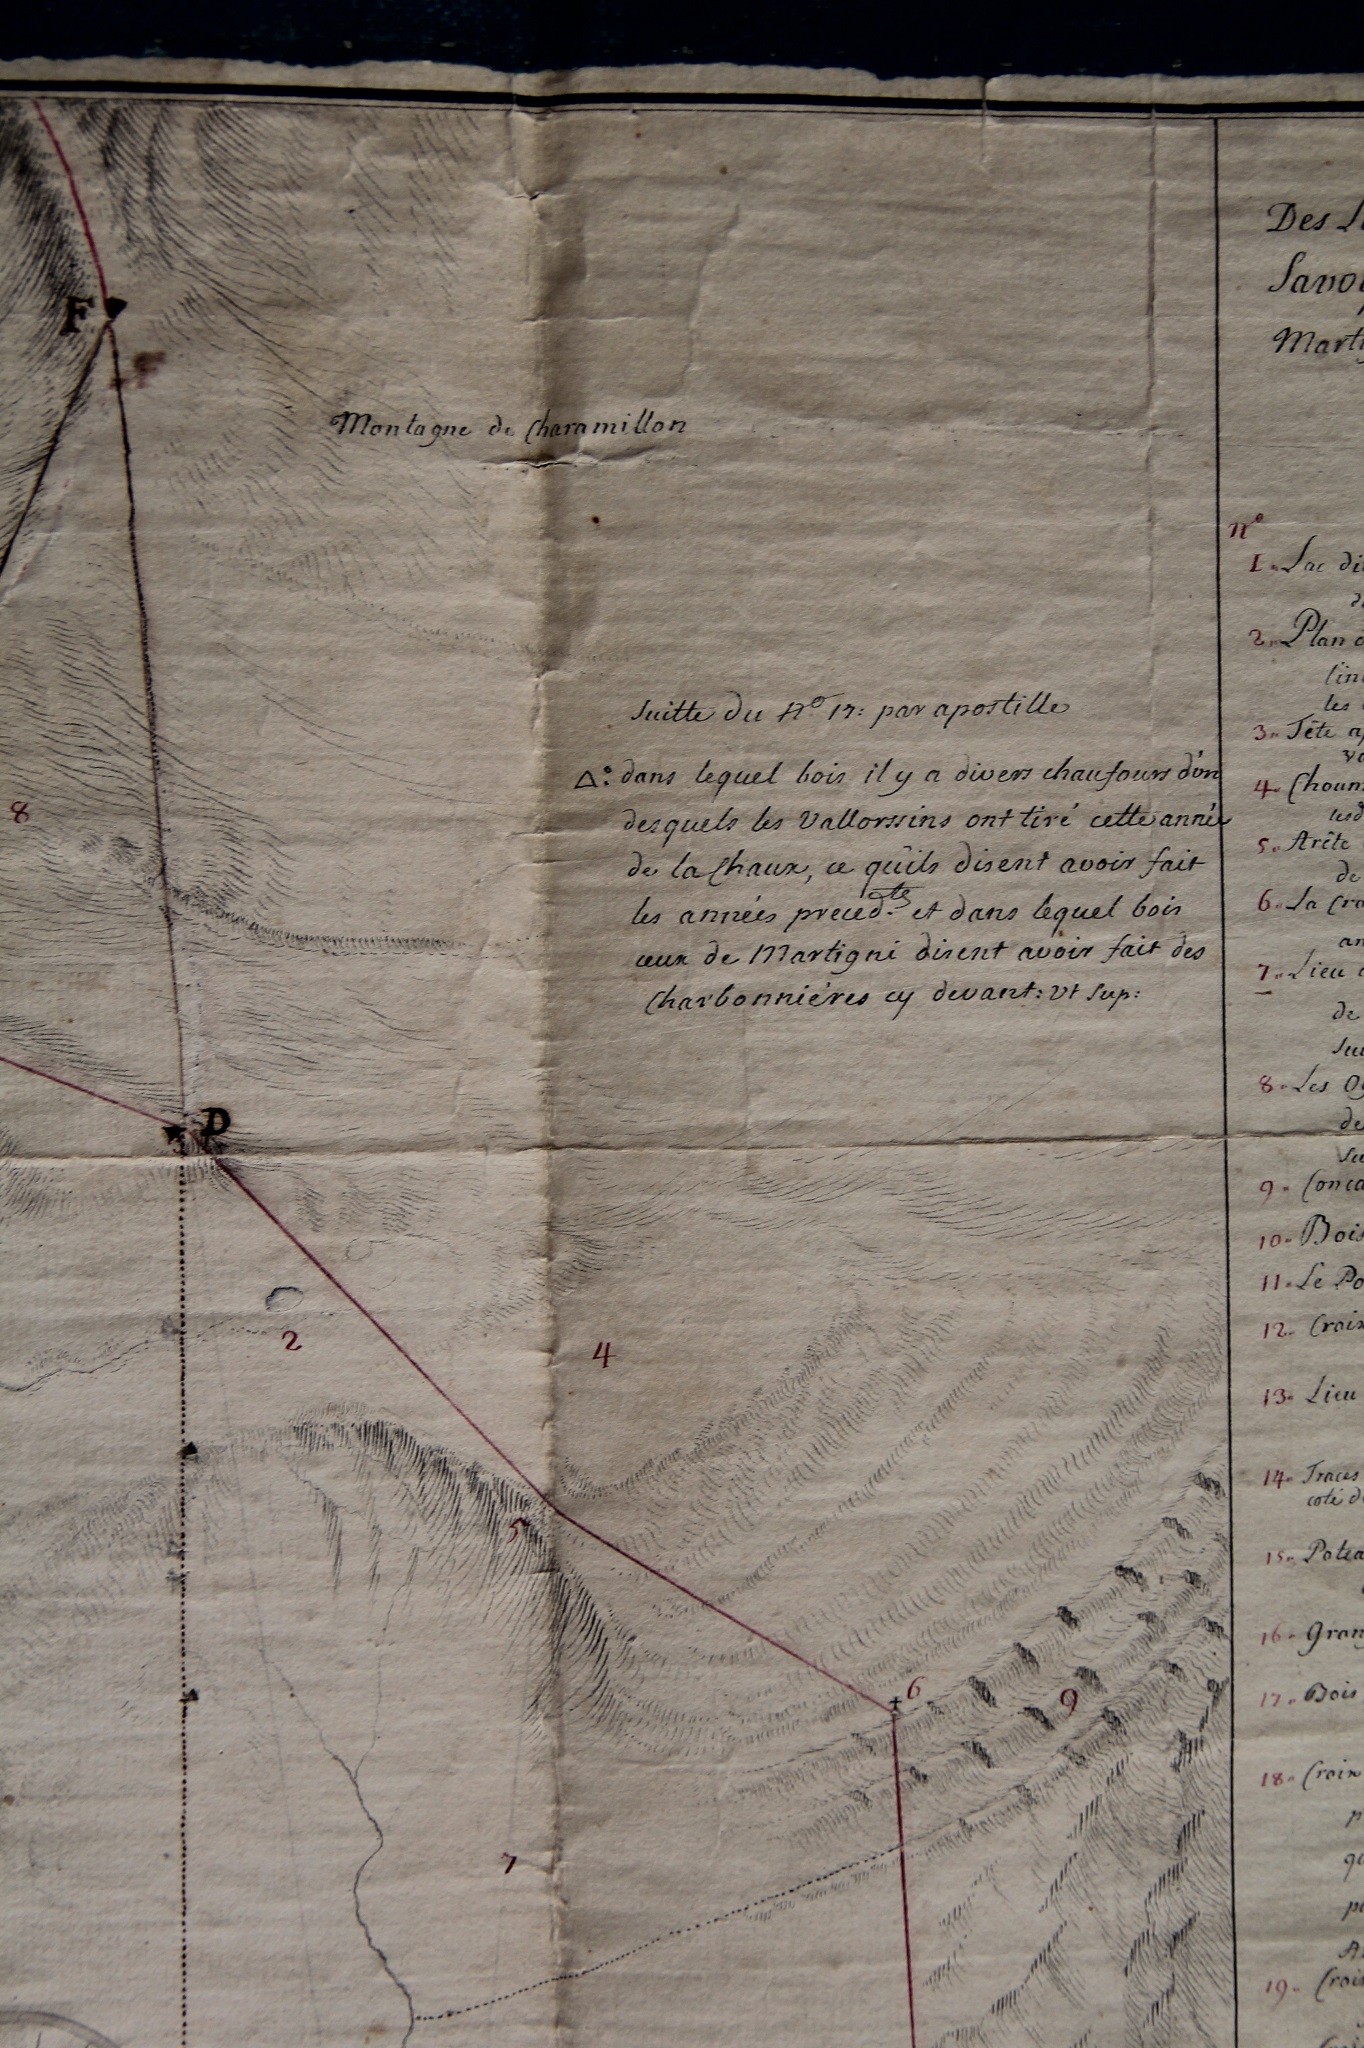 F
Montagne de Charamillon
Suitte du N.º 17: par apostille
Δ: dans lequel bois il y a divers chaufours d'un
desquels les Vallorssins ont tiré cette année
de la Chaux, ce qu'ils disent avoir fait
les années preced.tes et dans lequel bois
ceux de Martigni disent avoir fait des
Charbonniéres cy devant: Vt Sup:
8
D
2
4
5
6
9
7
Des Li
Savoi
Marti
N.º
1. Lac dit
2. Plan d
les
3. Tête ap
4. Choum
5. Arête
de
6. La Cro
an
7. Lieu
de
Sui
8. Les Og
de
Su
9. Conca
10. Bois
11. Le Po
12. Croix
13. Lieu
14. Traces
coté d
15. Potea
16. Gran
17. Bois
18. Croix
p
qu
p
A
19. Croi